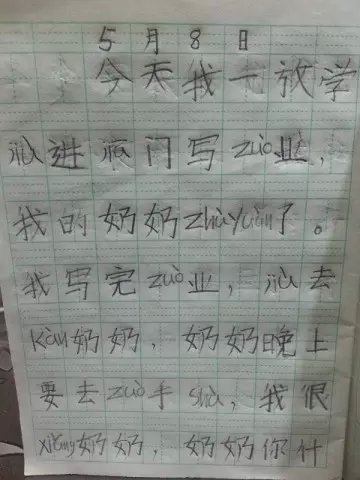 5月8日
今天我一放学
jiù进jiā门写zuò业，
我的奶奶zhùyuàn了。
我写完zuò业，jiù去
kàn奶奶，奶奶晚上
要去zuò手shù，我很
xiǎng奶奶，奶奶你什